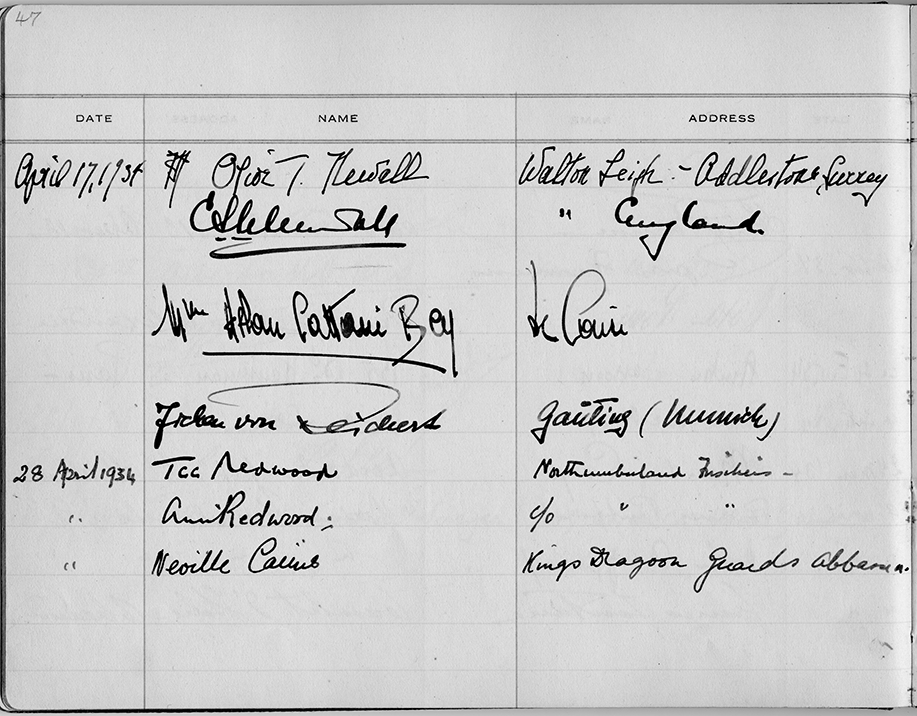 47
DATE NAME ADDRESS
April 17, 1934 T. Newall Walton Leigh - Addlestone, Surrey
" England.
Cattaui Bey Le Caire
von Gauting (Munich)
28 April 1934 Redwood Northumberland Fusiliers -
" Ann Redwood. c/o " "
" Neville Kings Dragoon Guards Abbassia.